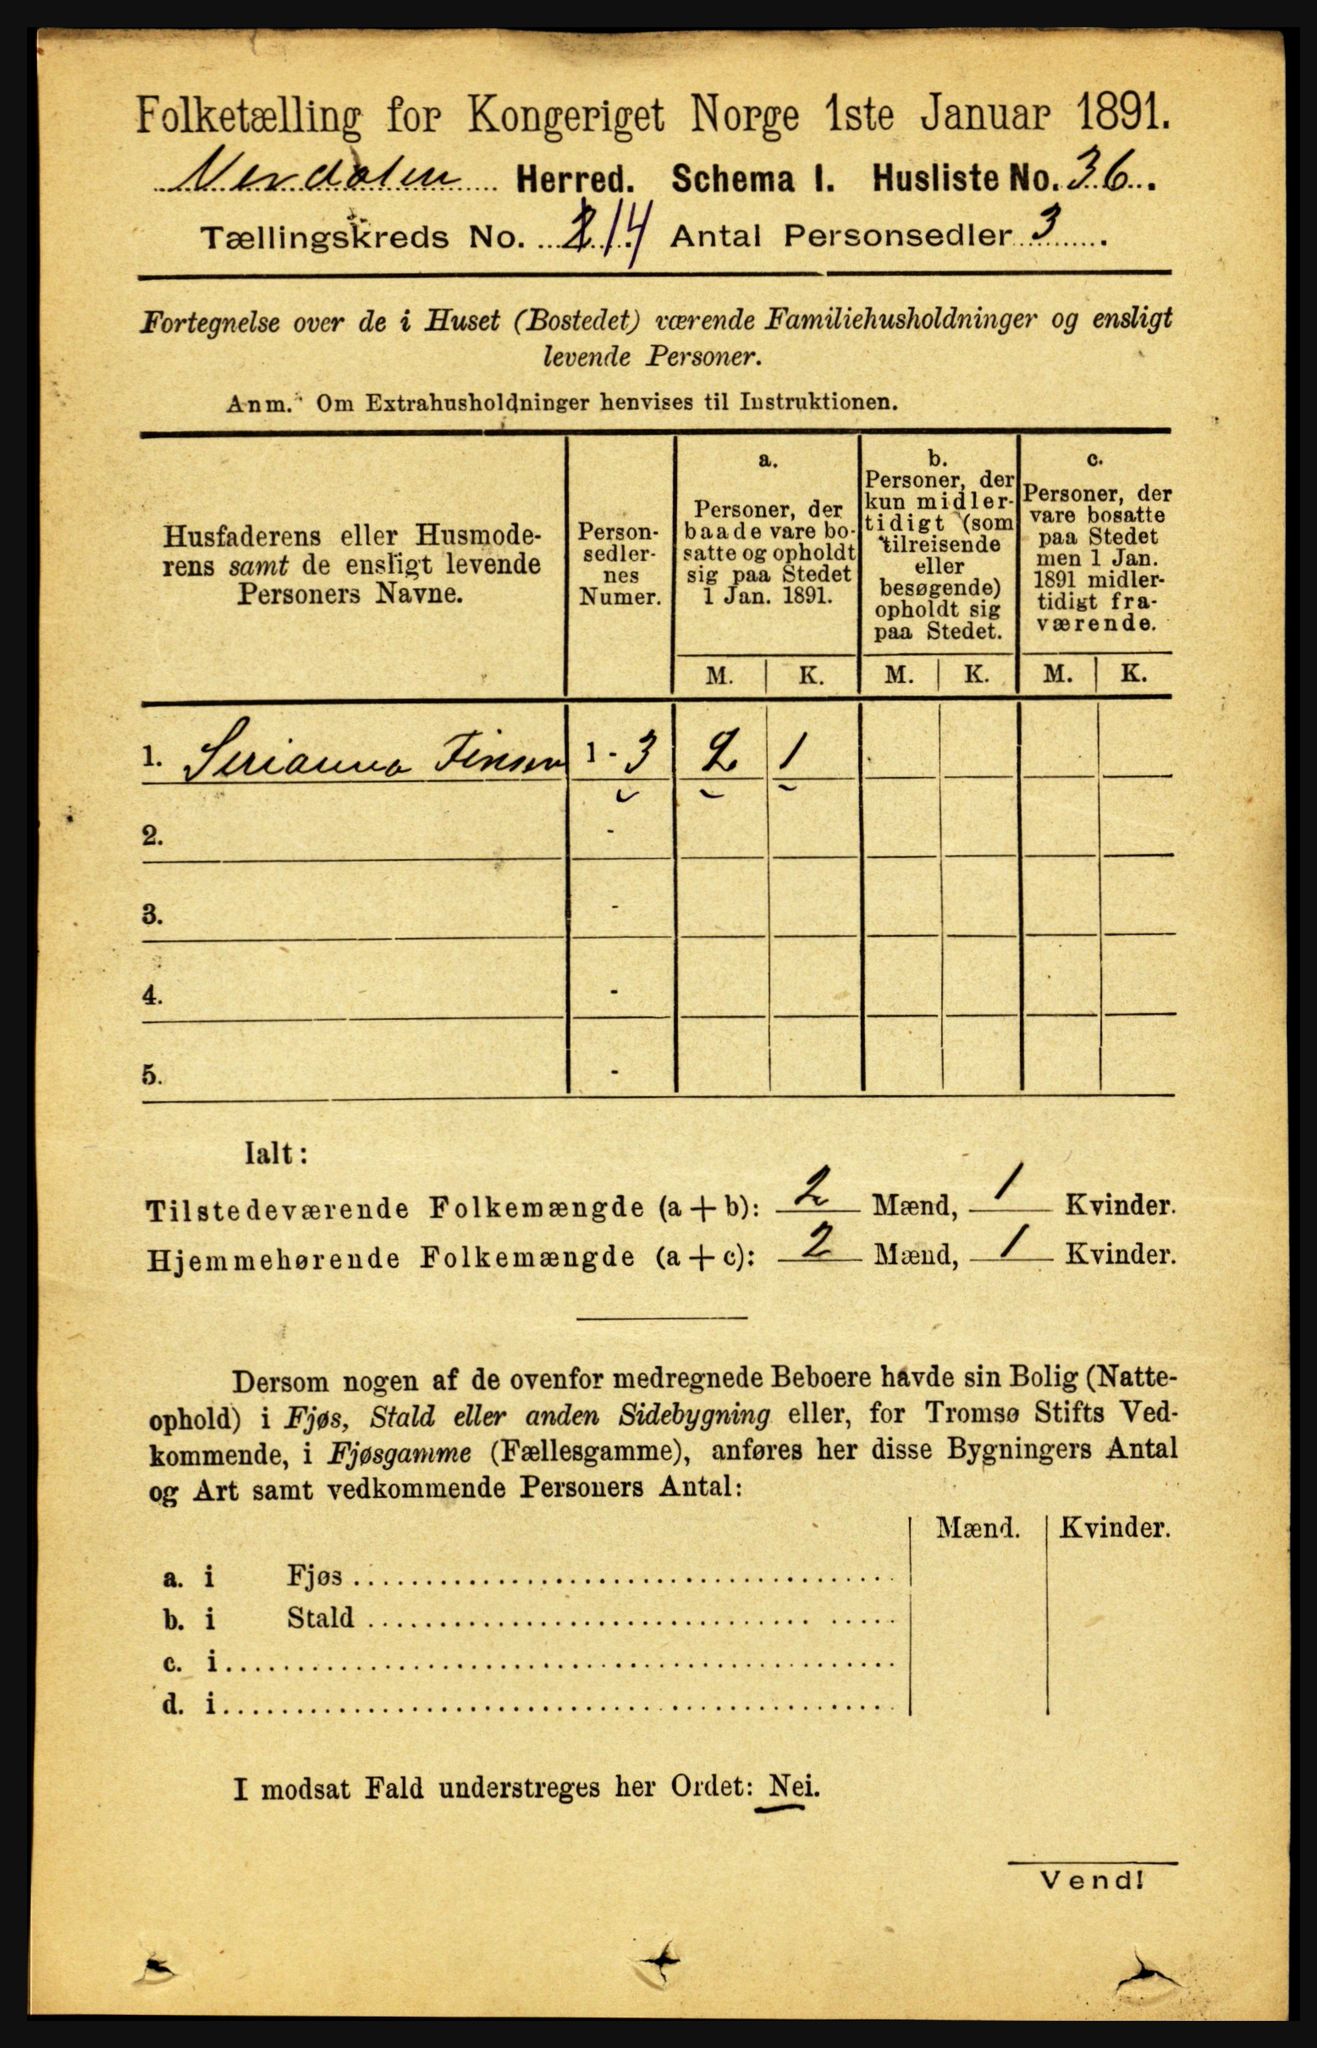 Folketælling for Kongeriget Norge 1ste Januar 1891.
Verdalen Herred. Schema I. Husliste No. 36.
Tællingskreds No. 14 Antal Personsedler 3.
Fortegnelse over de i Huset (Bostedet) værende Familiehusholdninger og ensligt
levende Personer.
Anm. Om Extrahusholdninger henvises til Instruktionen.
Husfaderens eller Husmode-
rens samt de ensligt levende
Personers Navne.
Person-
sedler-
nes
Numer.
a.
Personer, der
baade vare bo-
satte og opholdt
sig paa Stedet
1 Jan. 1891.
b.
Personer, der
kun midler-
tidigt (som
tilreisende
eller
besøgende)
opholdt sig
paa Stedet.
c.
Personer, der
vare bosatte
paa Stedet
men 1 Jan.
1891 midler-
tidigt fra-
værende.
M. K. M. K. M. K.
1. Serianna 1 - 3 2 1
2. -
3. -
4. -
5. -
Ialt:
Tilstedeværende Folkemængde (a + b): 2 Mænd, 1 Kvinder.
Hjemmehørende Folkemængde (a + c): 2 Mænd, 1 Kvinder.
Dersom nogen af de ovenfor medregnede Beboere havde sin Bolig (Natte-
ophold) i Fjøs, Stald eller anden Sidebygning eller, for Tromsø Stifts Ved-
kommende, i Fjøsgamme (Fællesgamme), anføres her disse Bygningers Antal
og Art samt vedkommende Personers Antal:
Mænd. Kvinder.
a. i Fjøs
b. i Stald
c. i
d. i
I modsat Fald understreges her Ordet: Nei.
Vend!